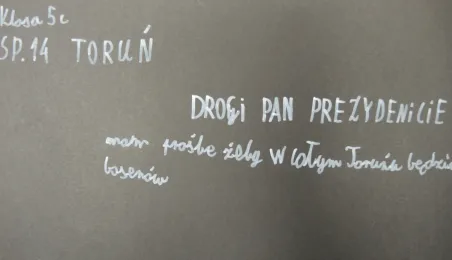 Klasa 5c
SP.14 TORUŃ
DROGI PAN PREZYDENICIE
mam prośbe żeby w całym Toruniu będzie
basenów